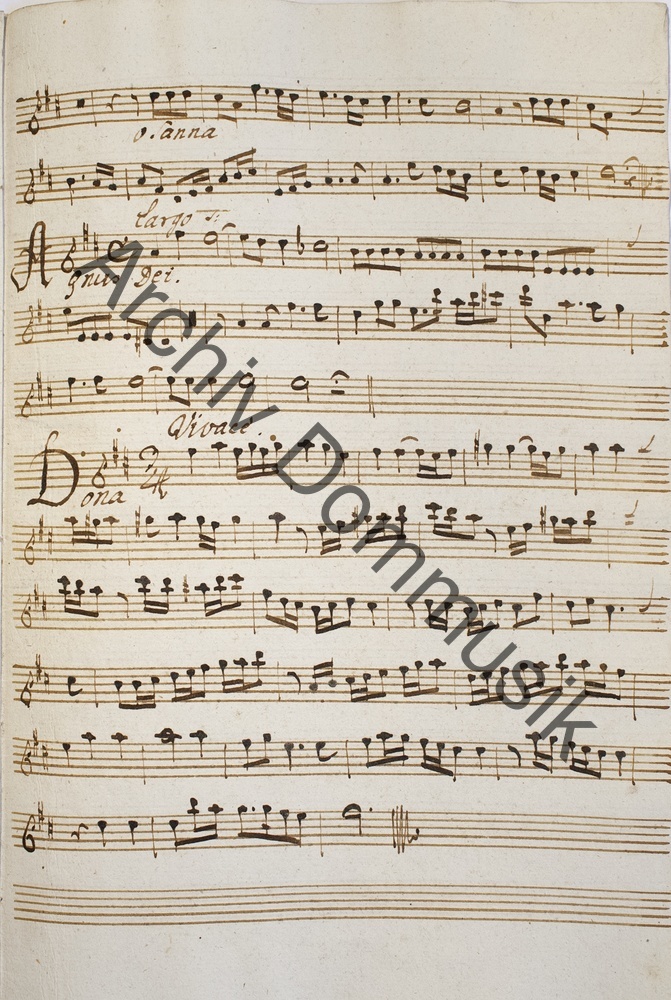 o. sanna
Largo
Agnus Dei.
Vivace.
Dona
3/4
Archiv Dommusik